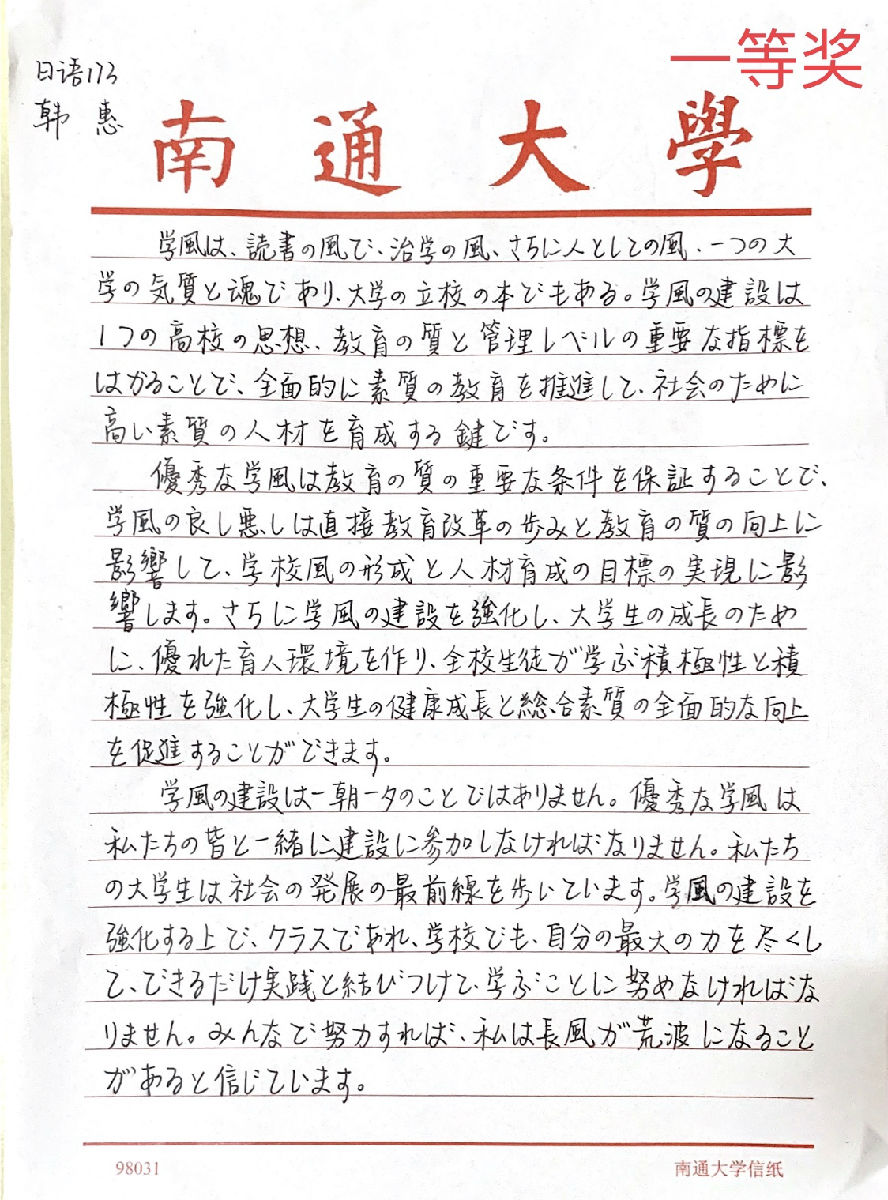 一等奖
日语173
韩惠
南通大學
学風は、読書の風で、治学の風、さらに人としての風、一つの大
学の気質と魂であり、大学の立校の本でもある。学風の建設は
1つの高校の思想、教育の質と管理レベルの重要な指標を
はかることで、全面的に素質の教育を推進して、社会のために
高い素質の人材を育成する鍵です。
優秀な学風は教育の質の重要な条件を保証することで、
学風の良し悪しは直接教育改革の歩みと教育の質の向上に
影響して、学校風の形成と人材育成の目標の実現に影
響します。さらに学風の建設を強化し、大学生の成長のため
に、優れた育人環境を作り、全校生徒が学ぶ積極性と積
極性を強化し、大学生の健康成長と総合素質の全面的な向上
を促進することができます。
学風の建設は一朝一夕のことではありません。優秀な学風は
私たちの皆と一緒に建設に参加しなければなりません。私たち
の大学生は社会の発展の最前線を歩いています。学風の建設を
強化する上で、クラスであれ、学校でも、自分の最大の力を尽くし
て、できるだけ実践と結びつけて、学ぶことに努めなければな
りません。みんなで努力すれば、私は長風が荒波になること
があると信じています。
98031
南通大学信纸